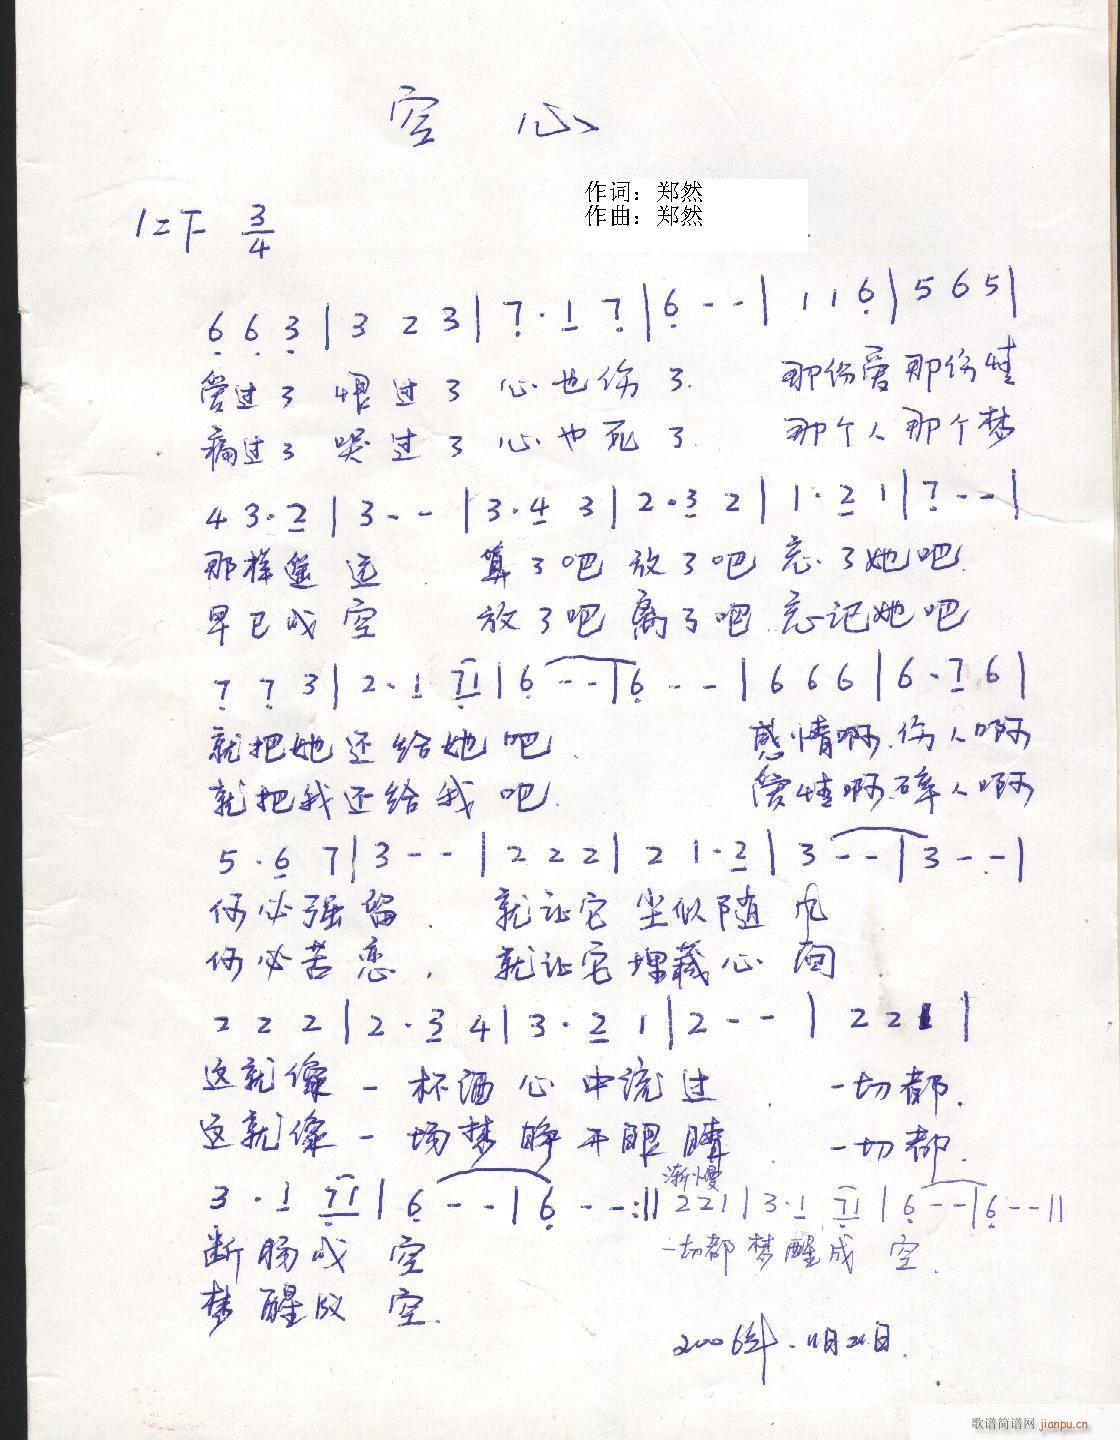 空 心
作词：郑然
作曲：郑然
1=F 3/4
6 6 3 | 3 2 3 | 7 · 1 7 | 6 - - | 1 1 6 | 5 6 5 |
爱过了 恨过了 心也伤了. 那份爱那份情
痛过了 哭过了 心也死了. 那个人那个梦
4 3 · 2 | 3 - - | 3 · 4 3 | 2 · 3 2 | 1 · 2 1 | 7 - - |
那样遥远. 算了吧 放了吧 忘了她吧.
早已成空 放了吧 离了吧 忘记她吧
7 7 3 | 2 · 1 71 | 6 - - | 6 - - | 6 6 6 | 6 · 7 6 |
就把她还给她吧. 感情啊.伤人啊
就把我还给我吧. 爱情啊.碎人啊
5 · 6 7 | 3 - - | 2 2 2 | 2 1 · 2 | 3 - - | 3 - - |
何必强留. 就让它尘似随风.
何必苦恋. 就让它埋藏心间.
2 2 2 | 2 · 3 4 | 3 · 2 1 | 2 - - | 2 2 1 |
这就像一杯酒心中流过. 一切都.
这就像一场梦睁开眼睛. 一切都.
渐慢
3 · 1 71 | 6 - - | 6 - - :|| 2 2 1 | 3 · 1 71 | 6 - - | 6 - - ||
断肠成空 一切都梦醒成空.
梦醒成空.
2006年.11月21日.
歌谱简谱网 jianpu.cn